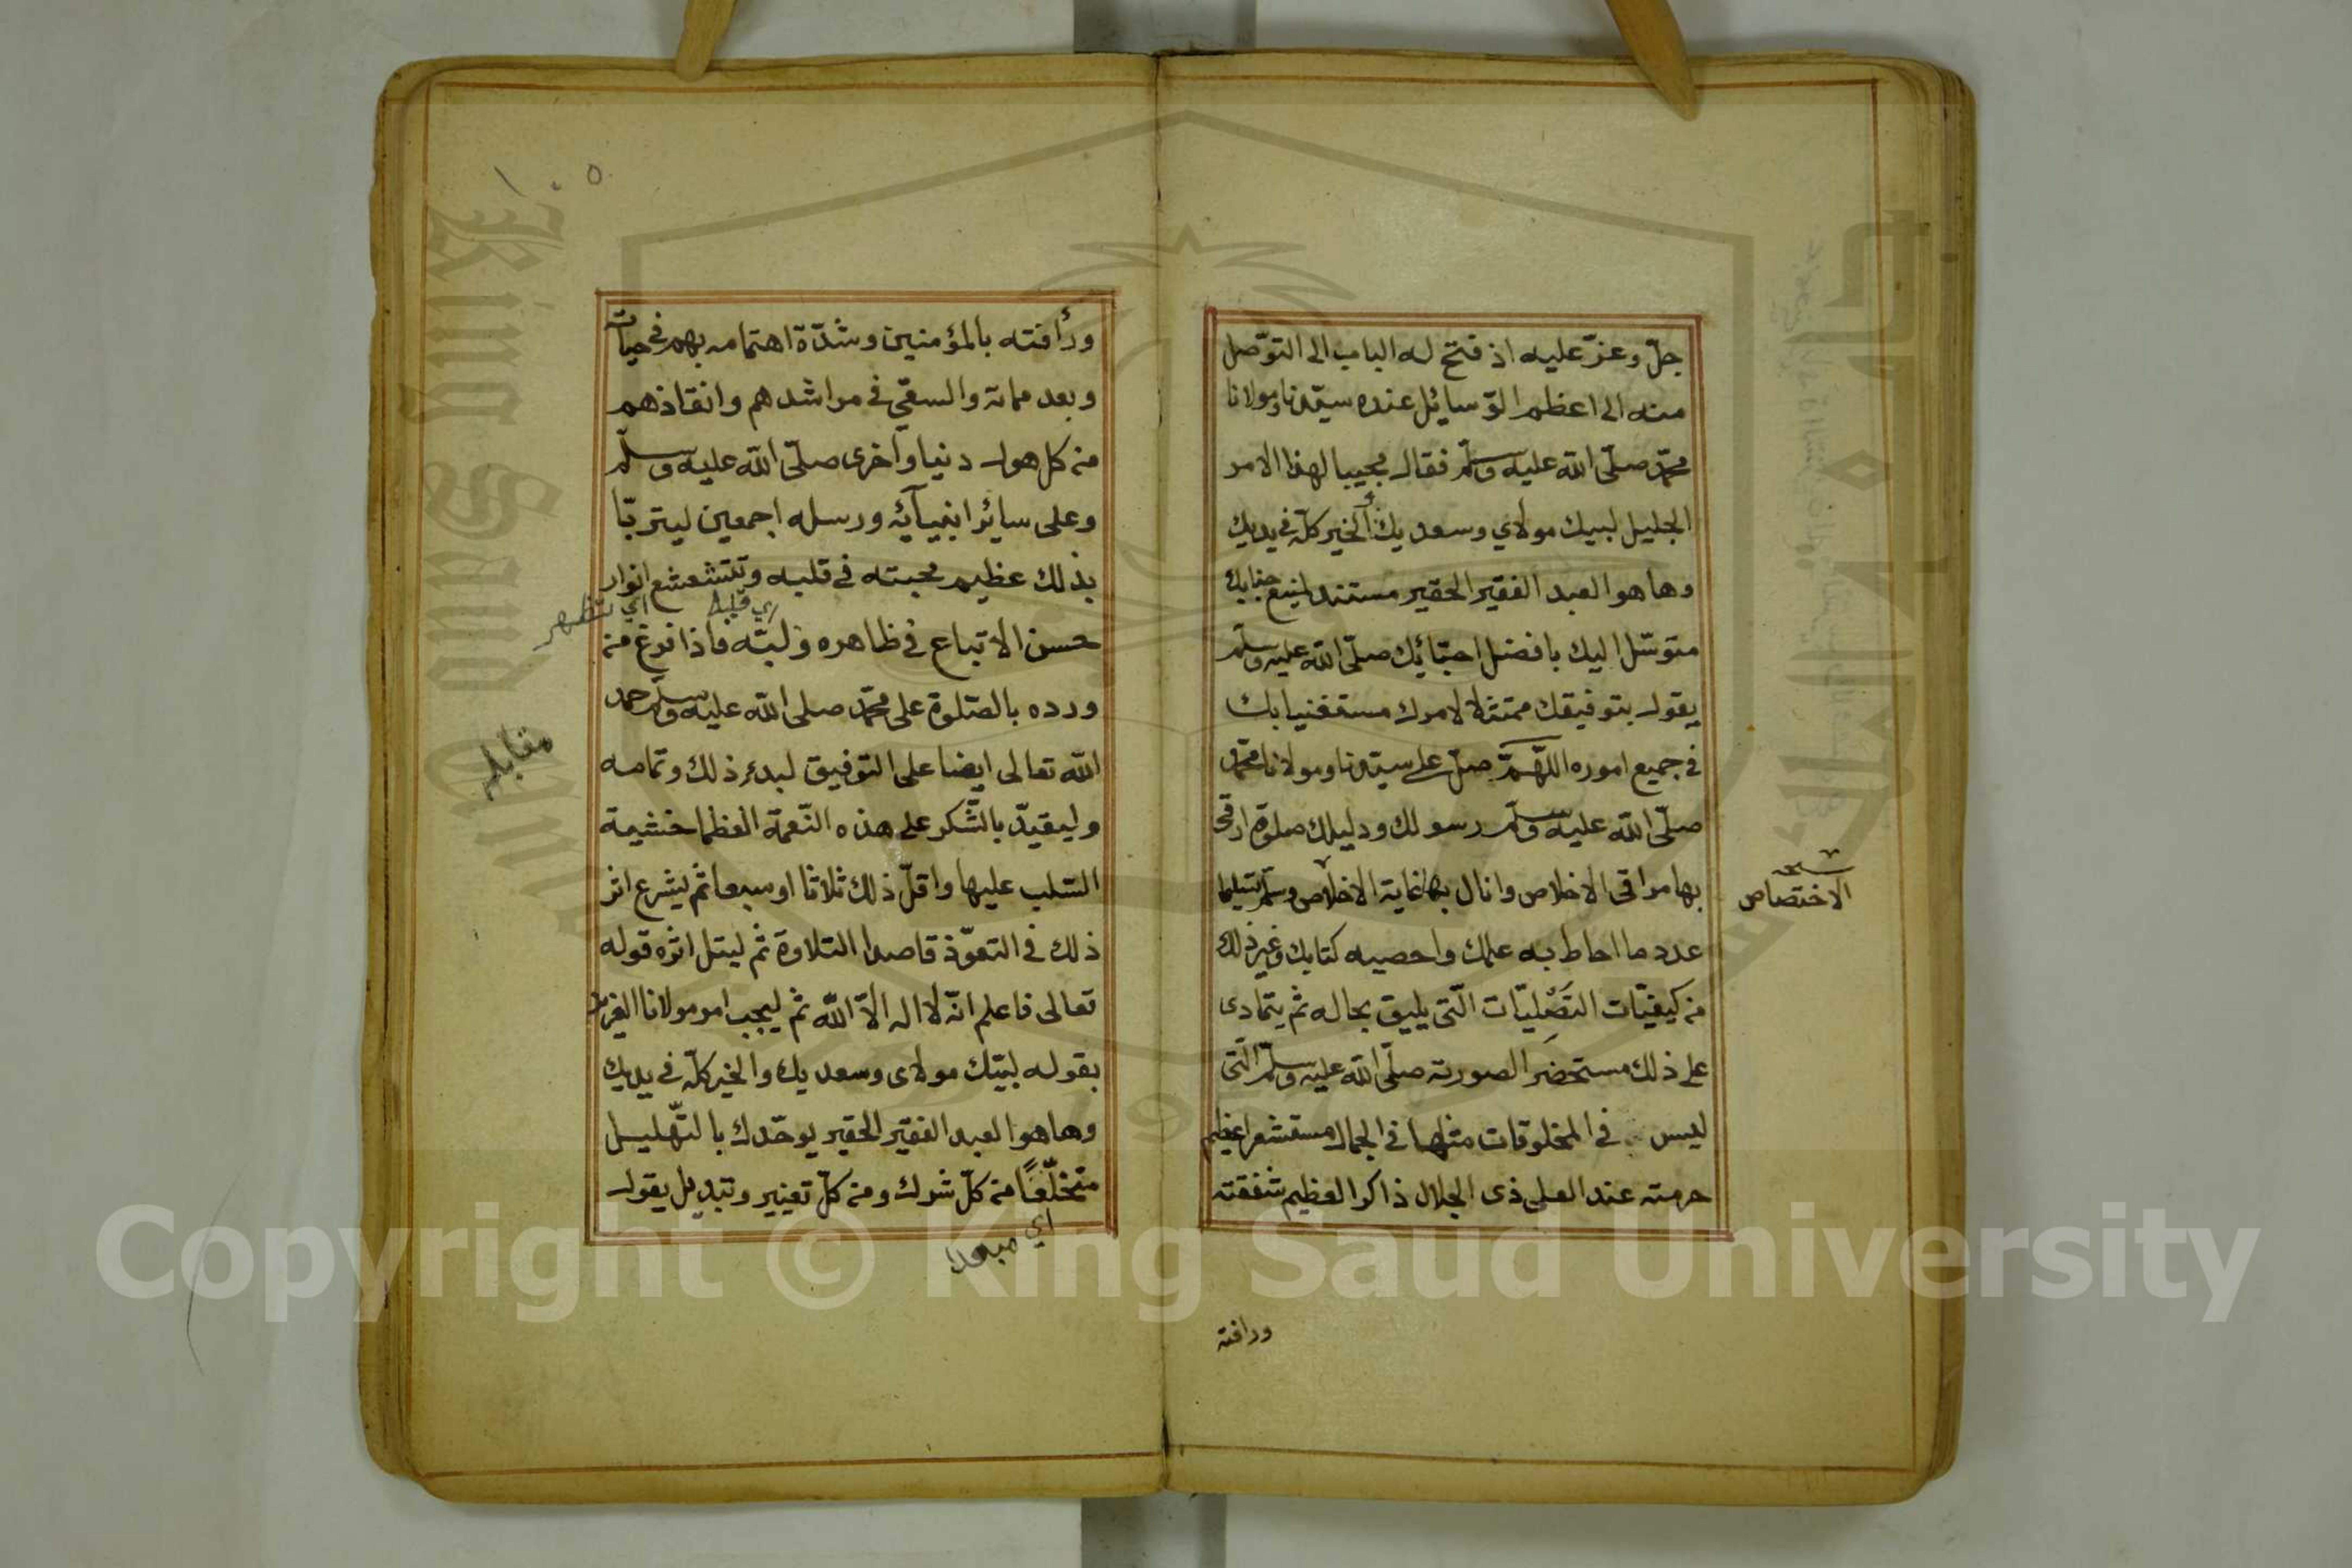 جلّ وعزّ عليه اذ فتح له الباب الى التوّصل
منه الى اعظم الوّسائل عنده سيّدنا ومولانا
محمّد صلّى الله عليه وسلّم فقال مجيبا لهذا الامر
الجليل لبيك مولاي وسعديك الخير كلّه في يديك
وها هو العبد الفقير الحقير مستند لمنيع جنابك
متوسّل اليك بافضل احبّائك صلّى الله عليه وسلّم
يقول بتوفيقك ممتثلا لامرك مستغنيا بك
في جميع اموره اللّهمّ صلّ على سيّدنا ومولانا محمّد
صلّى الله عليه وسلّم رسولك ودليلك صلوة ارقى
بها مراقى الاخلاص وانال بها غاية الاخلاص وسلّم تسليما
عدد ما احاط به علمك واحصيه كتابك وغير ذلك
من كيفيّات التصْليّات الّتى يليق بحاله ثم يتمادى
على ذلك مستحضِر الصورته صلّى الله عليه وسلّم الّتى
ليس في المخلوقات مثلها في الجمال مستشعرا عظيم
حرمته عند العلى ذى الجلال ذاكرا لعظيم شفقته
ورافته
الاختصاص
١٠٥
ورأفته بالمؤمنين وشدّة اهتمامه بهم في حياته
وبعد مماته والسعّي في مراشدهم وانقاذهم
من كل هول دنيا وأخرى صلّى الله عليه وسلّم
وعلى سائر انبيآئه ورسله اجمعين ليتربّا
بذلك عظيم محبته في قلبه وتتشعشع انوار
اي تظهر
اي قلبه
حسن الاتباع في ظاهره ولبّه فاذا فرغ من
ورده بالصّلوة على محمّد صلى الله عليه وسلّم حمد
الله تعالى ايضا على التوفيق لبدء ذلك وتمامه
مقابله
وليقيدّ بالشّكر على هذه النّعمة العظما خشيمة
السّلب عليها واقلّ ذلك ثلاثا او سبعا ثم ليشرع اثر
ذلك في التعوّذ قاصدا التلاوة ثم ليتل اثره قوله
تعالى فاعلم انّه لا اله الاّ الله ثم ليجب امر مولانا العزيز
بقوله لبيّك مولاى وسعديك والخير كلّه في يديك
وها هو العبد الفقير الحقير يوحّدك بالتّهليل
متخلّصًا من كلّ شرك ومن كلّ تغيير وتبديل يقول
King Saud University
Copyright © King Saud University